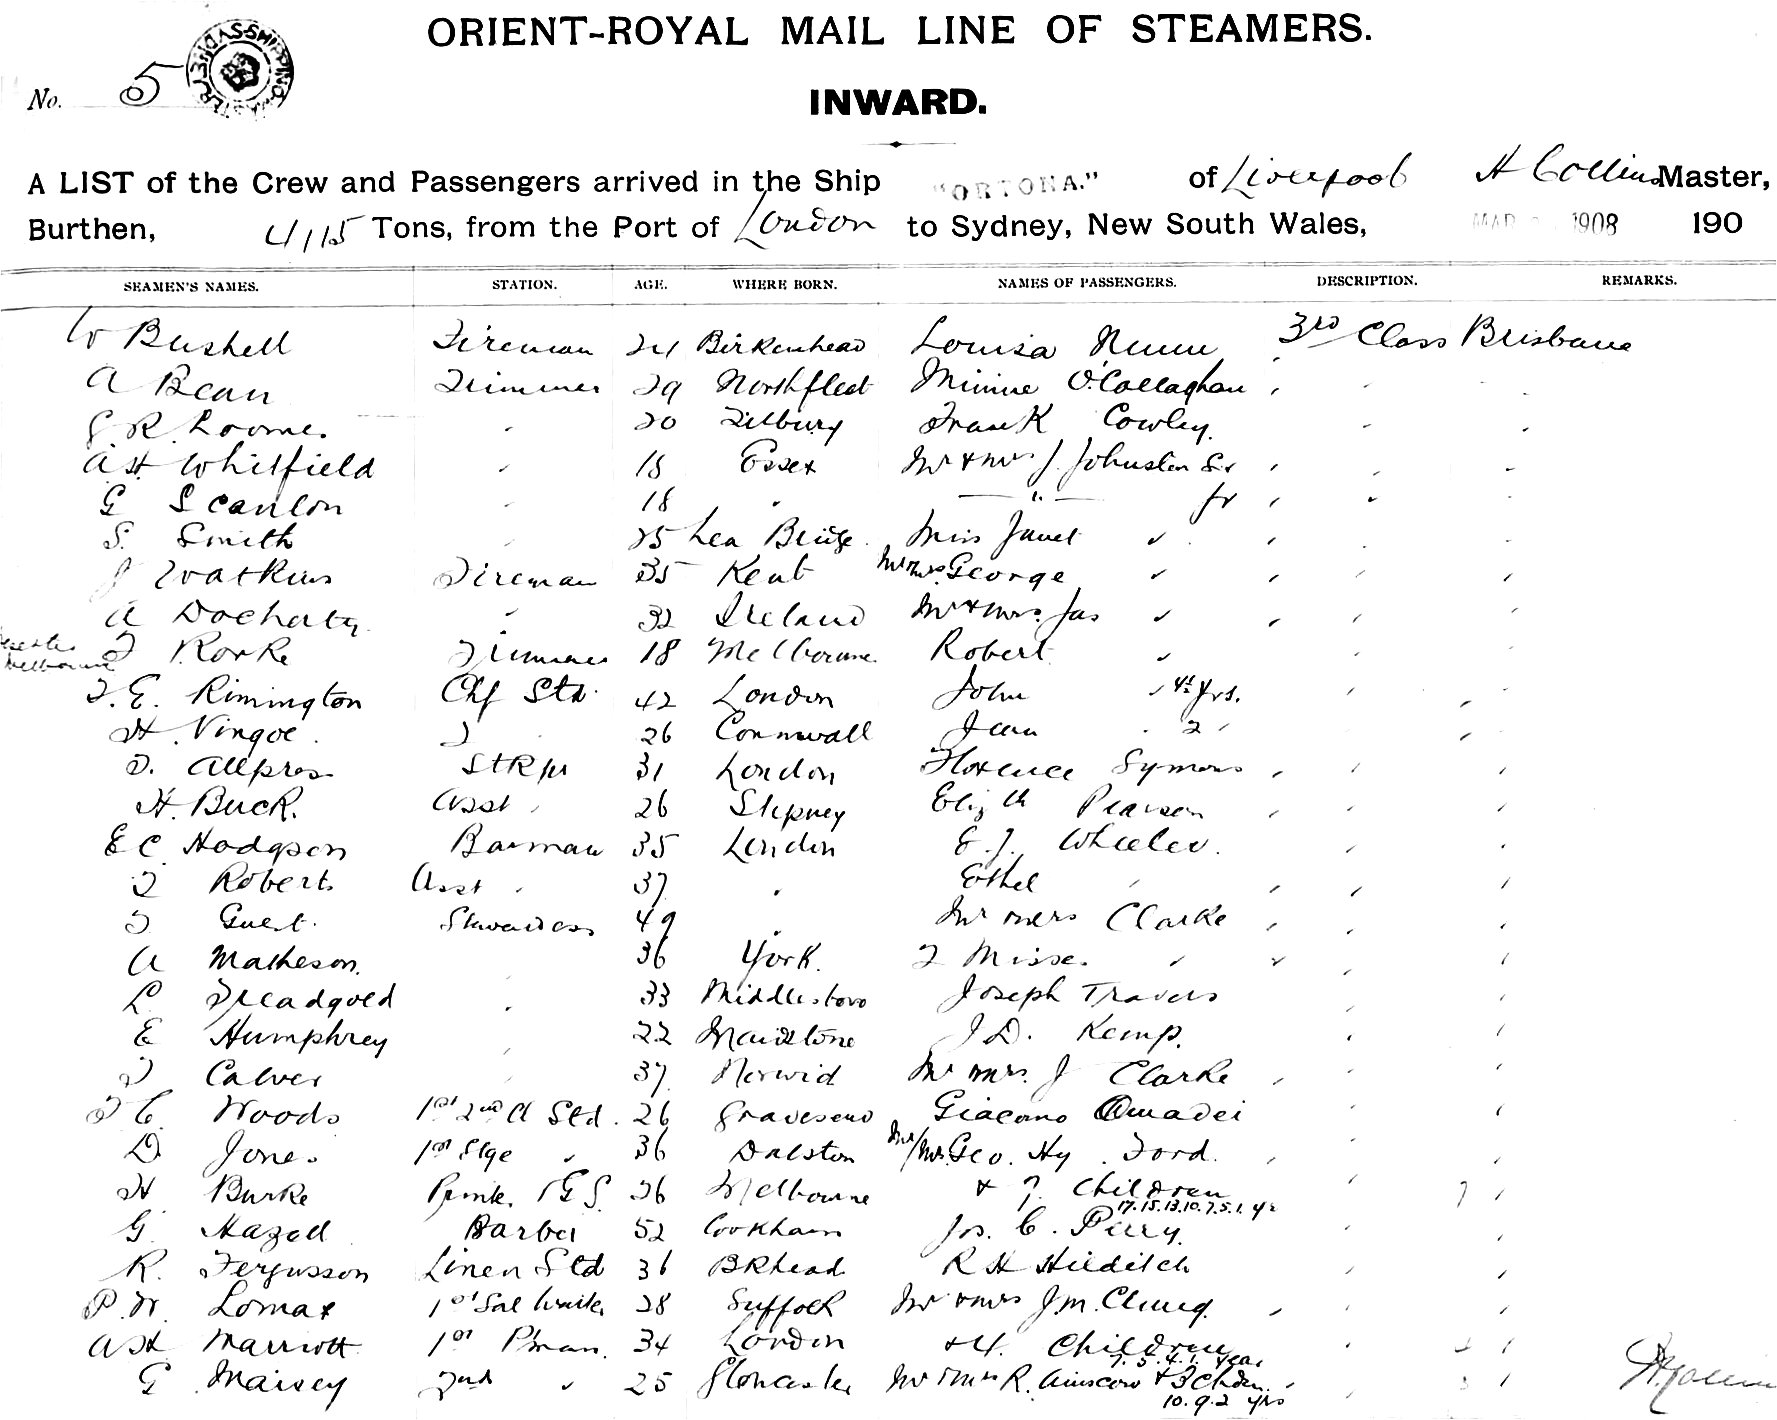 ORIENT-ROYAL MAIL LINE OF STEAMERS.
No. 5
INWARD.
A LIST of the Crew and Passengers arrived in the Ship "ORTONA." of Liverpool H Collins Master,
Burthen, 4115 Tons, from the Port of London to Sydney, New South Wales, MAR 1908 190
SEAMEN'S NAMES. STATION. AGE. WHERE BORN. NAMES OF PASSENGERS. DESCRIPTION. REMARKS.
W Bushell Fireman 24 Birkenhead Louisa Nunn 3rd Class Brisbane
A Bean Trimmer 29 Northfleet Minnie O'Callaghan
G R Loomes 20 Tilbury Frank Cowley.
A H Whitfield 18 Essex Mr & Mrs J. Johnston Sr
G Scanlon 18 " Jr
S. Smith 25 Lea Bridge Miss Janet
J Watkins Fireman 35 Kent Mr Mrs. George
A Docherty 32 Ireland Mr & Mrs. Jas
Melbourne J Rorke Trimmer 18 Melbourne Robert
T. E. Rimington Chf Std. 42 London John 4½ yrs.
H. Vingoe 26 Cornwall Jean 2
T. Allpress StKpr 31 London Florence Symons
H. Buck. Asst 26 Stepney Elizth Pearson
E C Hodgson Barman 35 London E. J. Wheeler.
J Roberts Asst 37 Ethel
J Guest. Stewardess 49 Mr Mrs Clarke
A Matheson. 36 York. 2 Misses
L Treadgold 33 Middlesboro Joseph Travers
E Humphrey 22 Maidstone J D. Kemp.
J Calver 37 Norwich Mr Mrs. J Clarke
J C Woods 1st 2nd Cl Std. 26 Gravesend Giacomo Amadei
D Jones 1st Stge 36 Dalston Mr/Mrs. Geo. Hy. Ford.
H Burke 26 Melbourne & 7 Children
17.15.13.10.7.5.1. yr
G. Hazell Barber 52 Cookham Jos. C. Perry.
R. Fergusson Linen Std 36 BKhead R H Hilditch
P. W. Lomax 1st Sal Waiter 28 Suffolk Mr & Mrs J. M. Clung.
A H Marriott 1st Pman. 34 London & 4. Children
7. 5. 4. 1. year
G Maisey 2nd 25 Gloucester Mr & Mrs R. Ainscow & 3 Chdn.
10. 9. 2 yrs